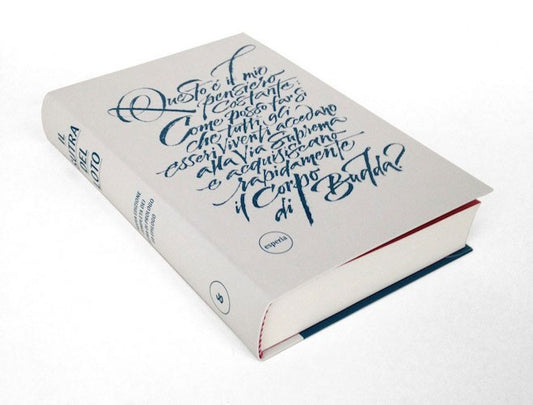 Questo è il mio
pensiero
costante:
Come posso far sì
che tutti gli
esseri viventi accedano
alla Via Suprema
e acquisiscano
rapidamente
il Corpo
di Budda?
esperia
IL
SUTRA
DEL
LOTO
EDIZIONE
COMPLETA DEI
PROLOGO
EPILOGO